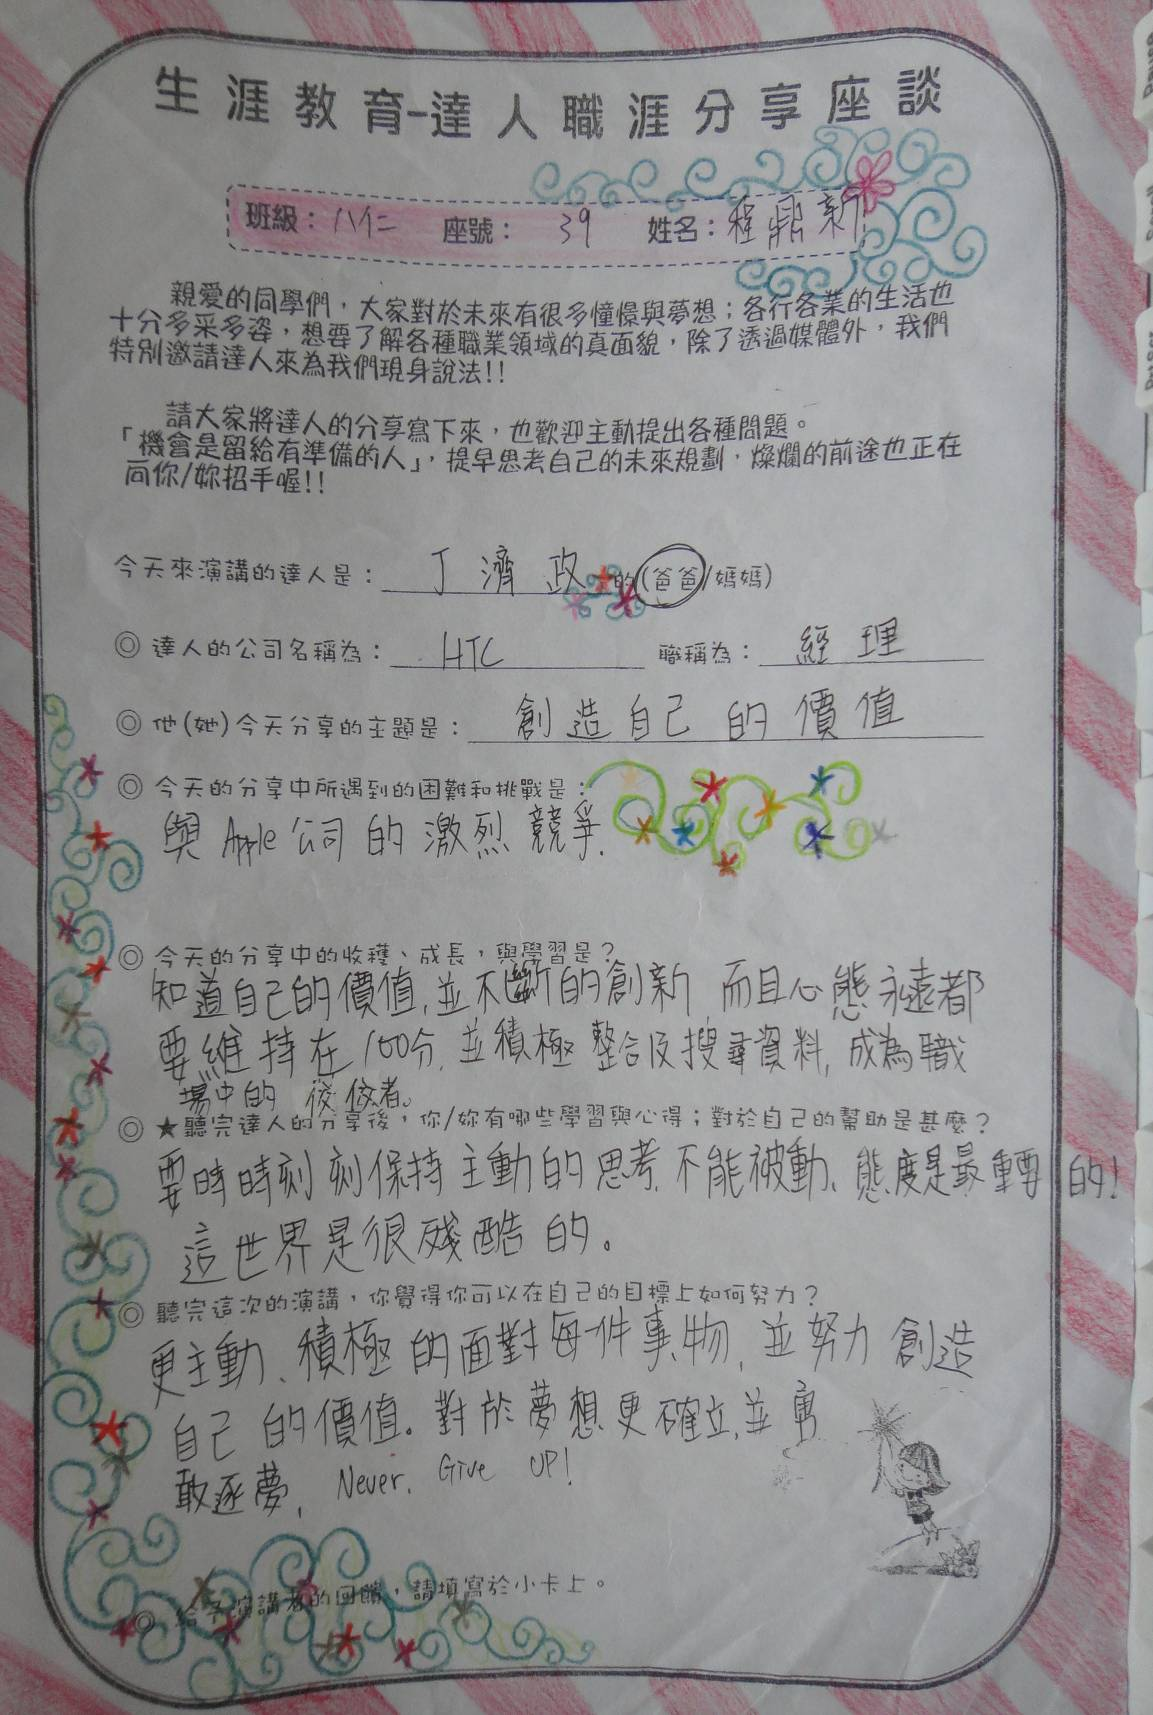 生涯教育-達人職涯分享座談
班級：八仁 座號： 39 姓名：程鼎新
親愛的同學們，大家對於未來有很多憧憬與夢想；各行各業的生活也
十分多采多姿，想要了解各種職業領域的真面貌，除了透過媒體外，我們
特別邀請達人來為我們現身說法!!
請大家將達人的分享寫下來，也歡迎主動提出各種問題。
「機會是留給有準備的人」，提早思考自己的未來規劃，燦爛的前途也正在
向你/妳招手喔!!
今天來演講的達人是：丁濟政的(爸爸/媽媽)
◎ 達人的公司名稱為：HTC 職稱為：經理
◎ 他(她)今天分享的主題是：創造自己的價值
◎ 今天的分享中所遇到的困難和挑戰是：
與Apple公司的激烈競爭.
◎ 今天的分享中的收穫、成長，與學習是？
知道自己的價值,並不斷的創新,而且心態永遠都
要維持在100分,並積極整合及搜尋資料,成為職
場中的佼佼者。
◎ ★聽完達人的分享後，你/妳有哪些學習與心得；對於自己的幫助是甚麼？
要時時刻刻保持主動的思考,不能被動、態度是最重要的!
這世界是很殘酷的。
◎ 聽完這次的演講，你覺得你可以在自己的目標上如何努力？
更主動、積極的面對每一件事物,並努力創造
自己的價值。對於夢想更確立,並勇
敢逐夢, Never. Give UP!
◎ 給予演講者的回饋，請填寫於小卡上。